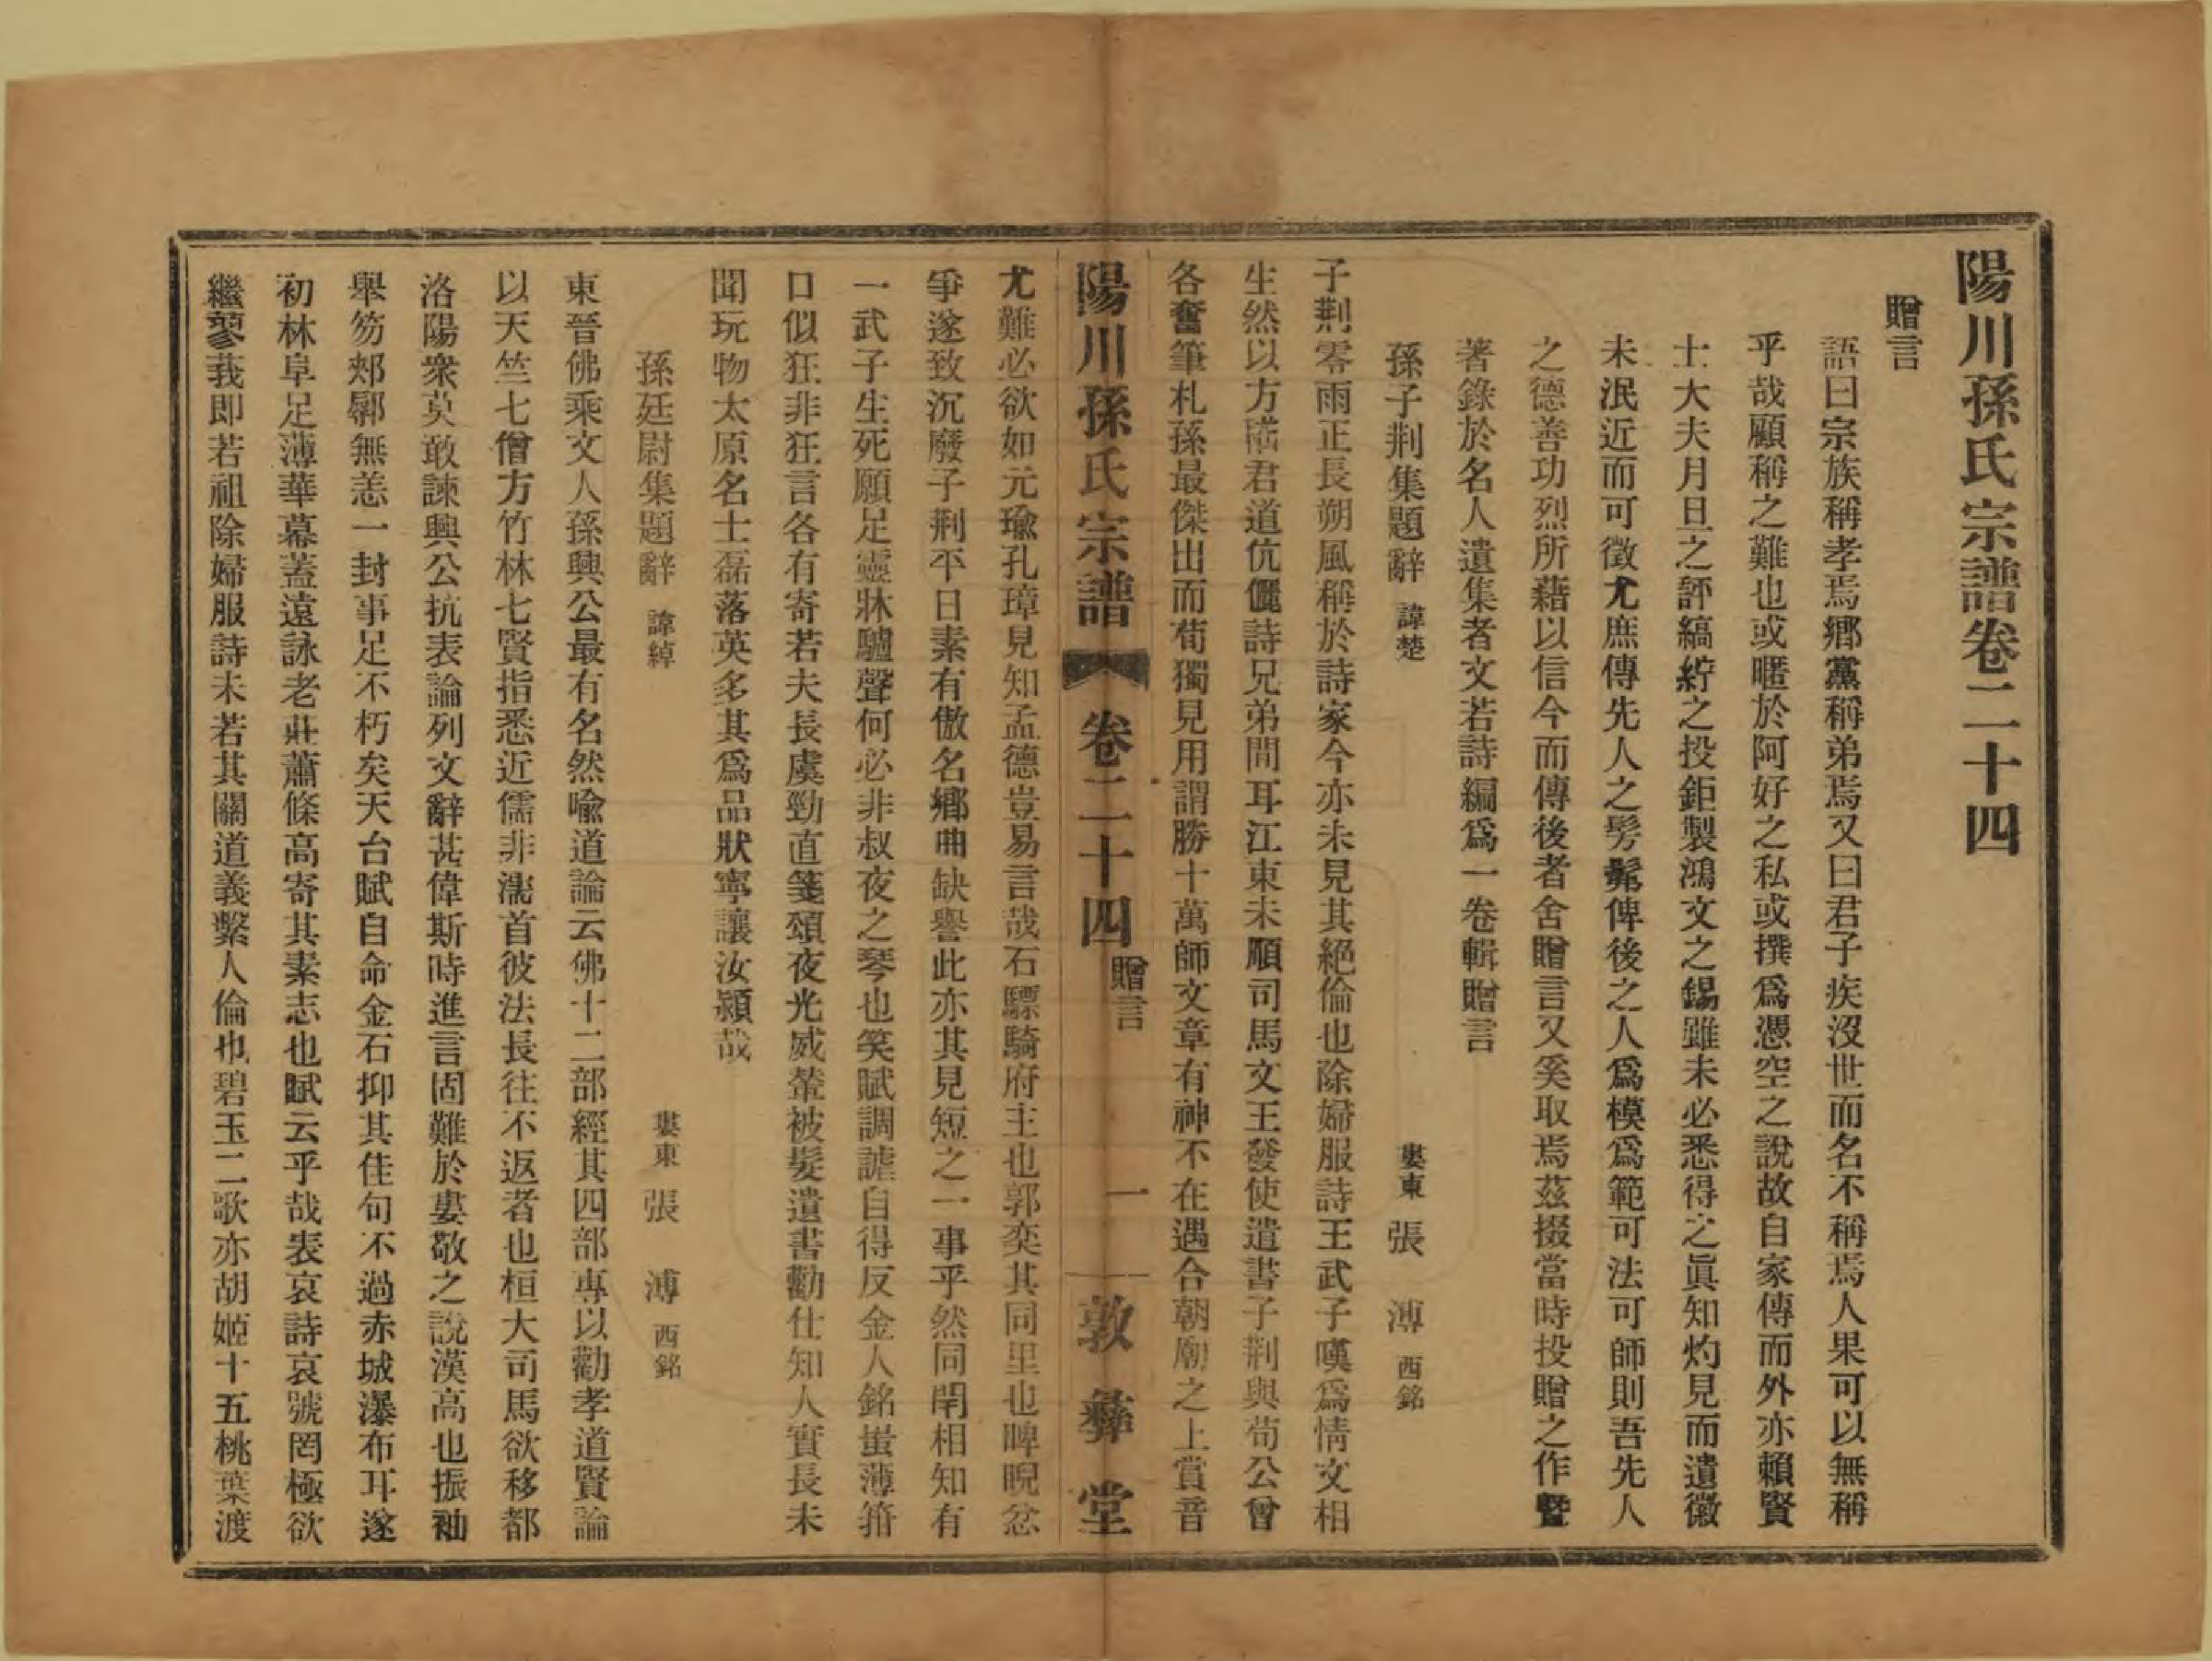 陽川孫氏宗譜卷二十四
贈言
語曰宗族稱孝焉鄉黨稱弟焉又曰君子疾沒世而名不稱焉人果可以無稱
乎哉顧稱之難也或暱於阿好之私或撰爲憑空之說故自家傳而外亦賴賢
士大夫月旦之評縞紵之投鉅製鴻文之錫雖未必悉得之眞知灼見而遺徽
未泯近而可徵尤庶傳先人之髣髴俾後之人爲模爲範可法可師則吾先人
之德善功烈所藉以信今而傳後者舍贈言又奚取焉茲掇當時投贈之作曁
著錄於名人遺集者文若詩編爲一卷輯贈言
孫子荆集題辭 諱楚 婁東 張 溥 西銘
子荆零雨正長朔風稱於詩家今亦未見其絕倫也除婦服詩王武子嘆爲情文相
生然以方潘君道伉儷詩兄弟間耳江東未順司馬文王發使遣書子荆與荀公曾
各奮筆札孫最傑出而荀獨見用謂勝十萬師文章有神不在遇合朝廟之上賞音
陽川孫氏宗譜 卷二十四 贈言 一 敦彝堂
尤難必欲如元瑜孔璋見知孟德豈易言哉石驃騎府主也郭奕其同里也睥睨忿
爭遂致沉廢子荆平日素有傲名鄉曲缺譽此亦其見短之一事乎然同閈相知有
一武子生死願足靈牀驢聲何必非叔夜之琴也笑賦調謔自得反金人銘蚩薄箝
口似狂非狂言各有寄若夫長虞勁直箋頌夜光威輦被髮遺書勸仕知人實長未
聞玩物太原名士磊落英多其爲品狀寧讓汝潁哉
孫廷尉集題辭 諱綽 婁東 張 溥 西銘
東晉佛乘文人孫興公最有名然喩道論云佛十二部經其四部專以勸孝道賢論
以天竺七僧方竹林七賢指悉近儒非濡首彼法長往不返者也桓大司馬欲移都
洛陽衆莫敢諫興公抗表論列文辭甚偉斯時進言固難於婁敬之說漢高也振袖
舉笏郟鄏無恙一封事足不朽矣天台賦自命金石抑其佳句不過赤城瀑布耳遂
初林阜足薄華幕蓋遠詠老莊蕭條高寄其素志也賦云乎哉表哀詩哀號罔極欲
繼蓼莪即若祖除婦服詩未若其關道義繫人倫也碧玉二歌亦胡姬十五桃葉渡